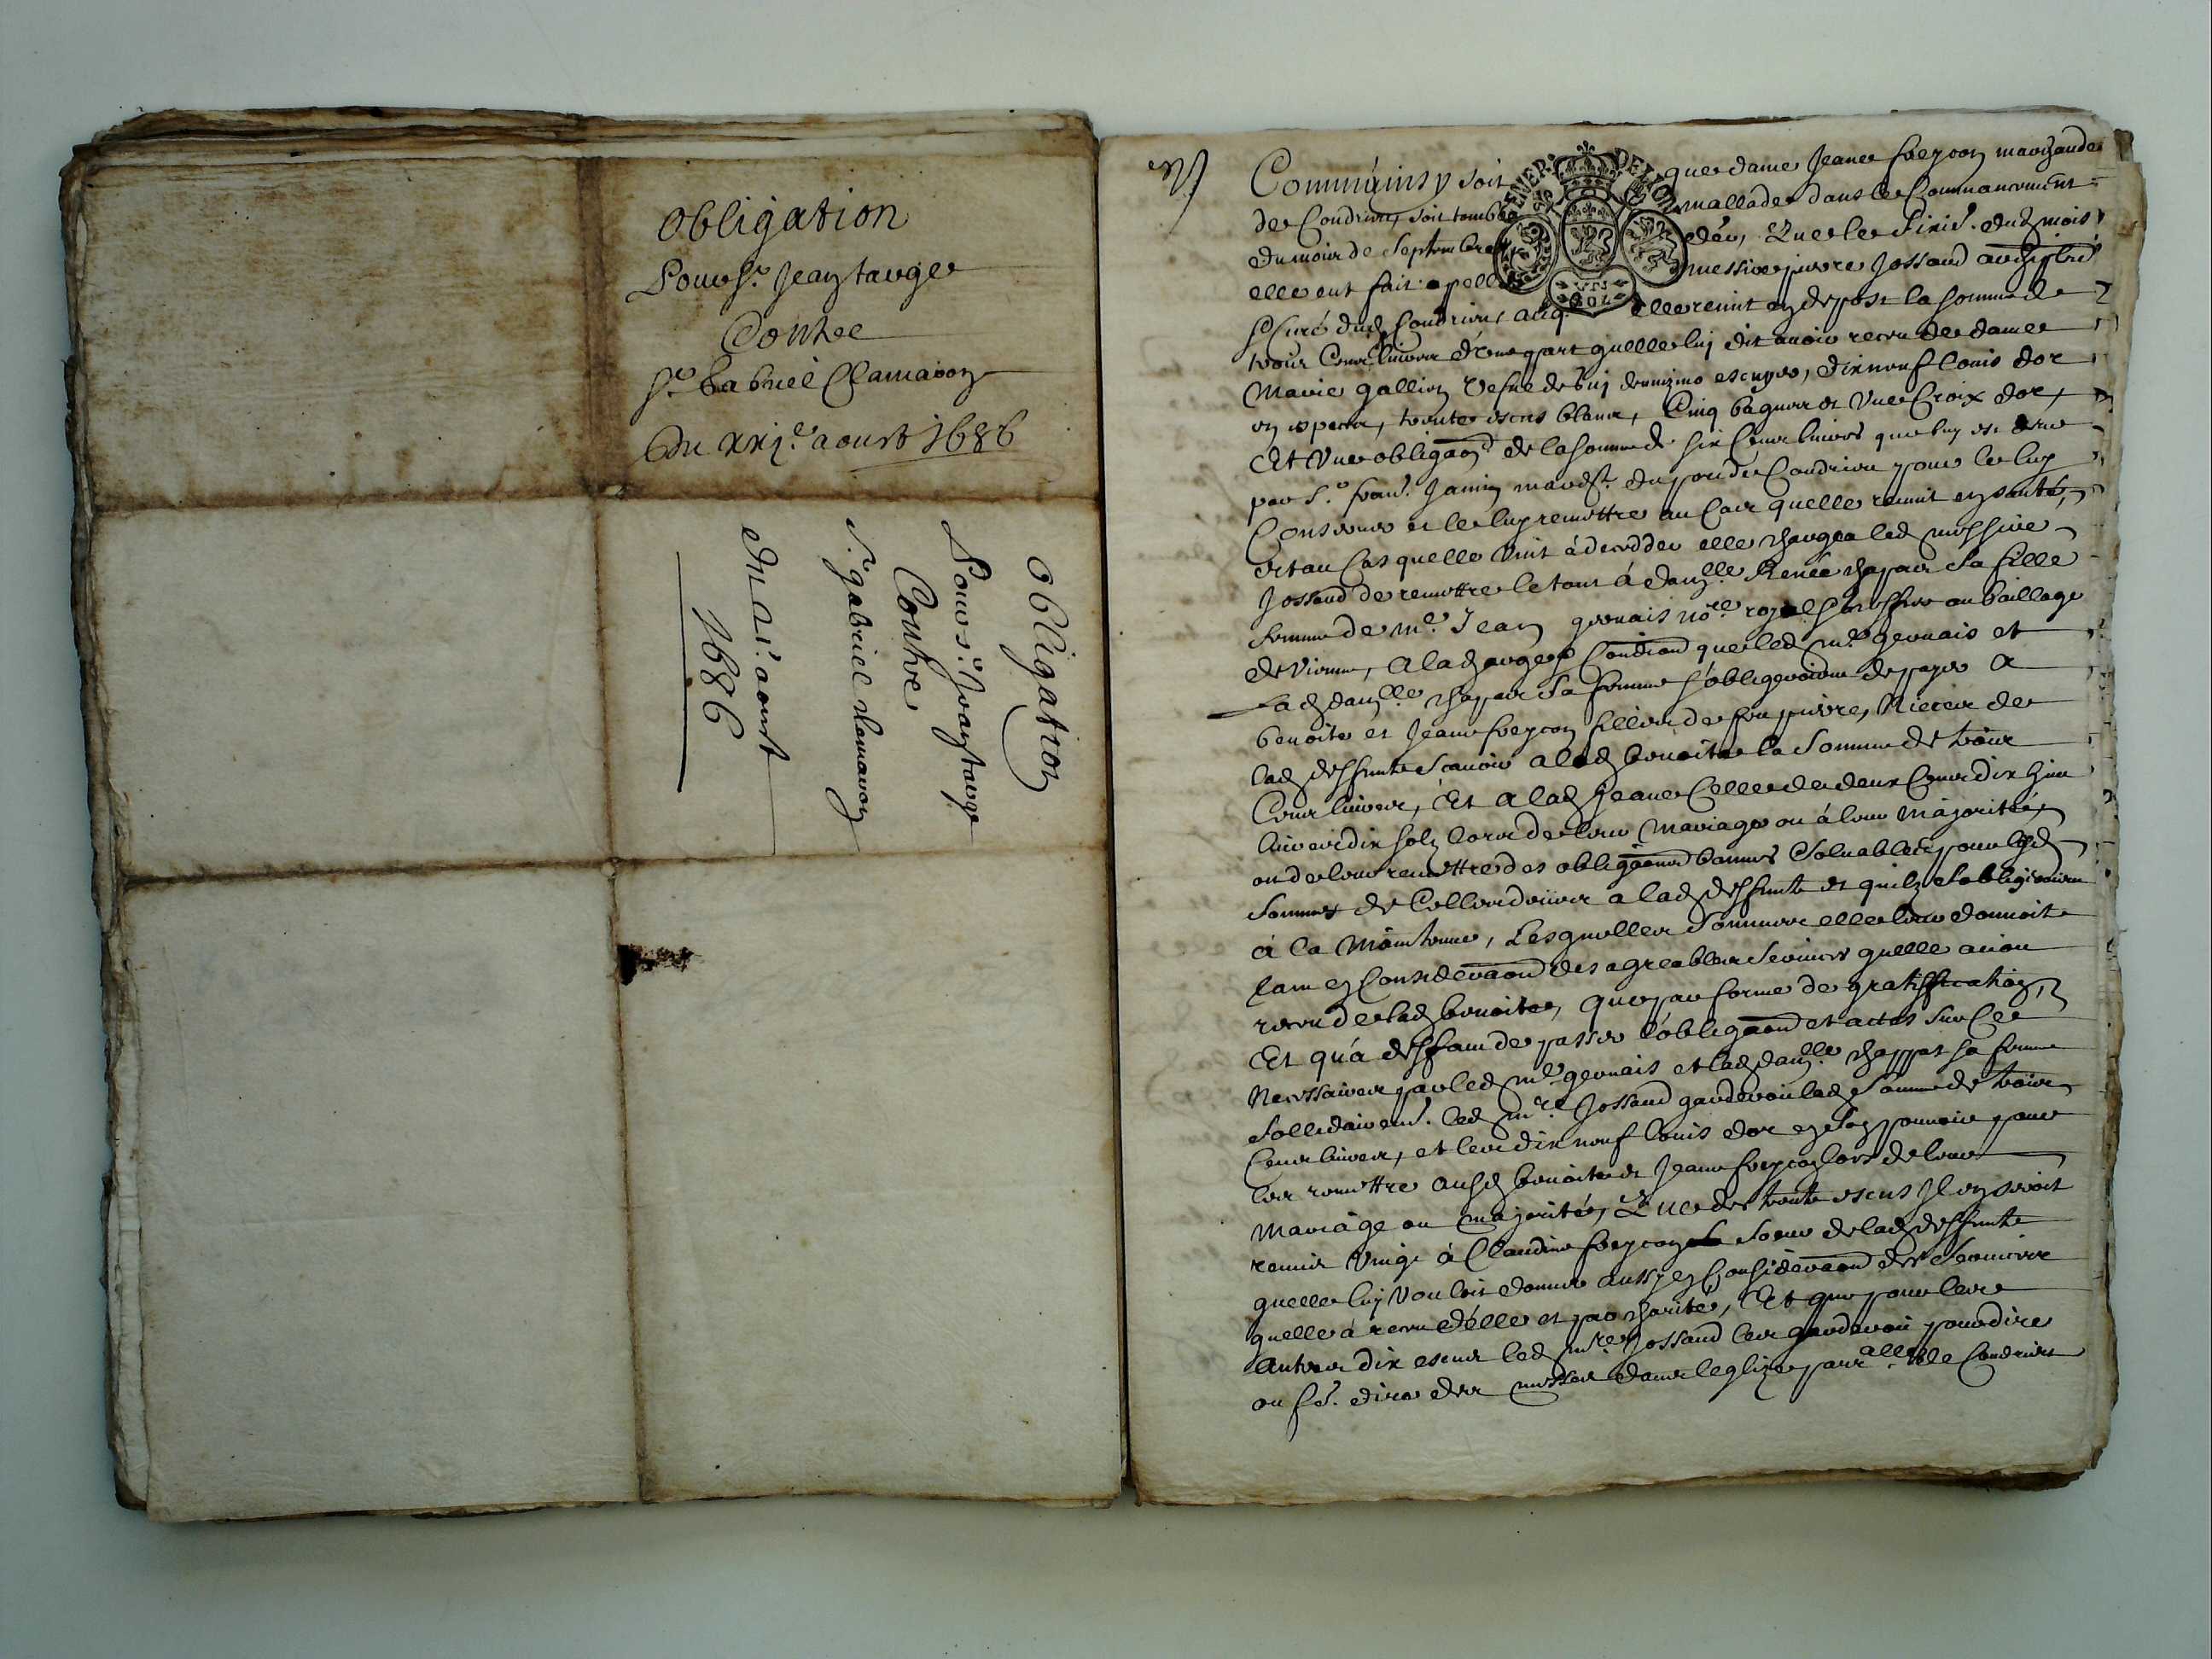 Obligation
Pour Sr. Jean tauge
Contre
Sr. Gabriel Clamaron
Du xxje. aoust 1686
Obligation
Pour Sr. Jean tauge
Contre
Sr. gabriel clamaron
du 21e. aoust
1686
Comme ainsy soit que dame Jeanne freycon marchande
de Condrieu, soit tombée mallade dans le Commancement
du mois de Septembre der, Que le sixie. dud mois
elle eut fait apeller messire pierre Jossand archiptre
Sr Curé dud Condrieu auq. elle remit en depost la somme de
trois Cens livres d'une part quelle luj dit avoir receu de dame
Marie gallien Vefve de escuyer, dixneuf louis dor
en espece, trente escus blanc, Cinq bagues et Une Croix dor,
Et Une obligaon de la somme de six Cens livres que luy est deue
par Sr. frans. Jamin marcht. du port de Condrieu pour le luy
Conserver et le luy remettre au Cas quelle revint en santé,
et au Cas quelle vint à decedder elle chargea led messire
Jossand de remettre le tout à damlle. Renée chapuis sa fille
femme de me. Jean gervais nore. royal greffier au baillage
de Vienne, A la charge et Condiond que led me gervais et
lad damlle. chapuis sa femme s'obligeroient de payer a
benoite et Jeanne freycon filles de feu pierre, Nieces de
lad deffunte Scavoir a lad benoite la Somme de trois
Cens livres, Et a lad Jeanne Celle de deux Cens dix huit
livres dix solz lors de leur Mariage ou à leur majorité,
ou de leur remettre des obligaons bonnes Solvables pour lesd
Sommes de Celles deües a lad deffunte et quilz s'obligeroient
à la Maintenue, Lesquelles Sommes elle leur donnoit
tant en Consideraond des agreables Services quelle avoit
receu de lad benoite, que par forme de gratiffication,
Et qu'a deffaut de passer l'obligaond et actes sur Ce
Necessaires par led me gervais et lad damlle. chappuis sa femme
Sollidairemt. led mre. Jossand garderoit lad Somme de trois
Cens livres, et les dix neuf louis dor en son pouvoir pour
les remettre ausd benoite et Jeanne freycon lors de leur
Mariage ou majorité, Que des trente escus Il en seroit
remis Vingt à Claudine freycon Soeur de lad deffunte
quelle luj vouloit donner aussy en Consideraond des Services
quelle à receu d'elle et par charité, Et que pour les
autres dix escus led mre. Jossand les garderoit pour dire
ou fe. dire des messes dans leglize parralle. de Condrieu